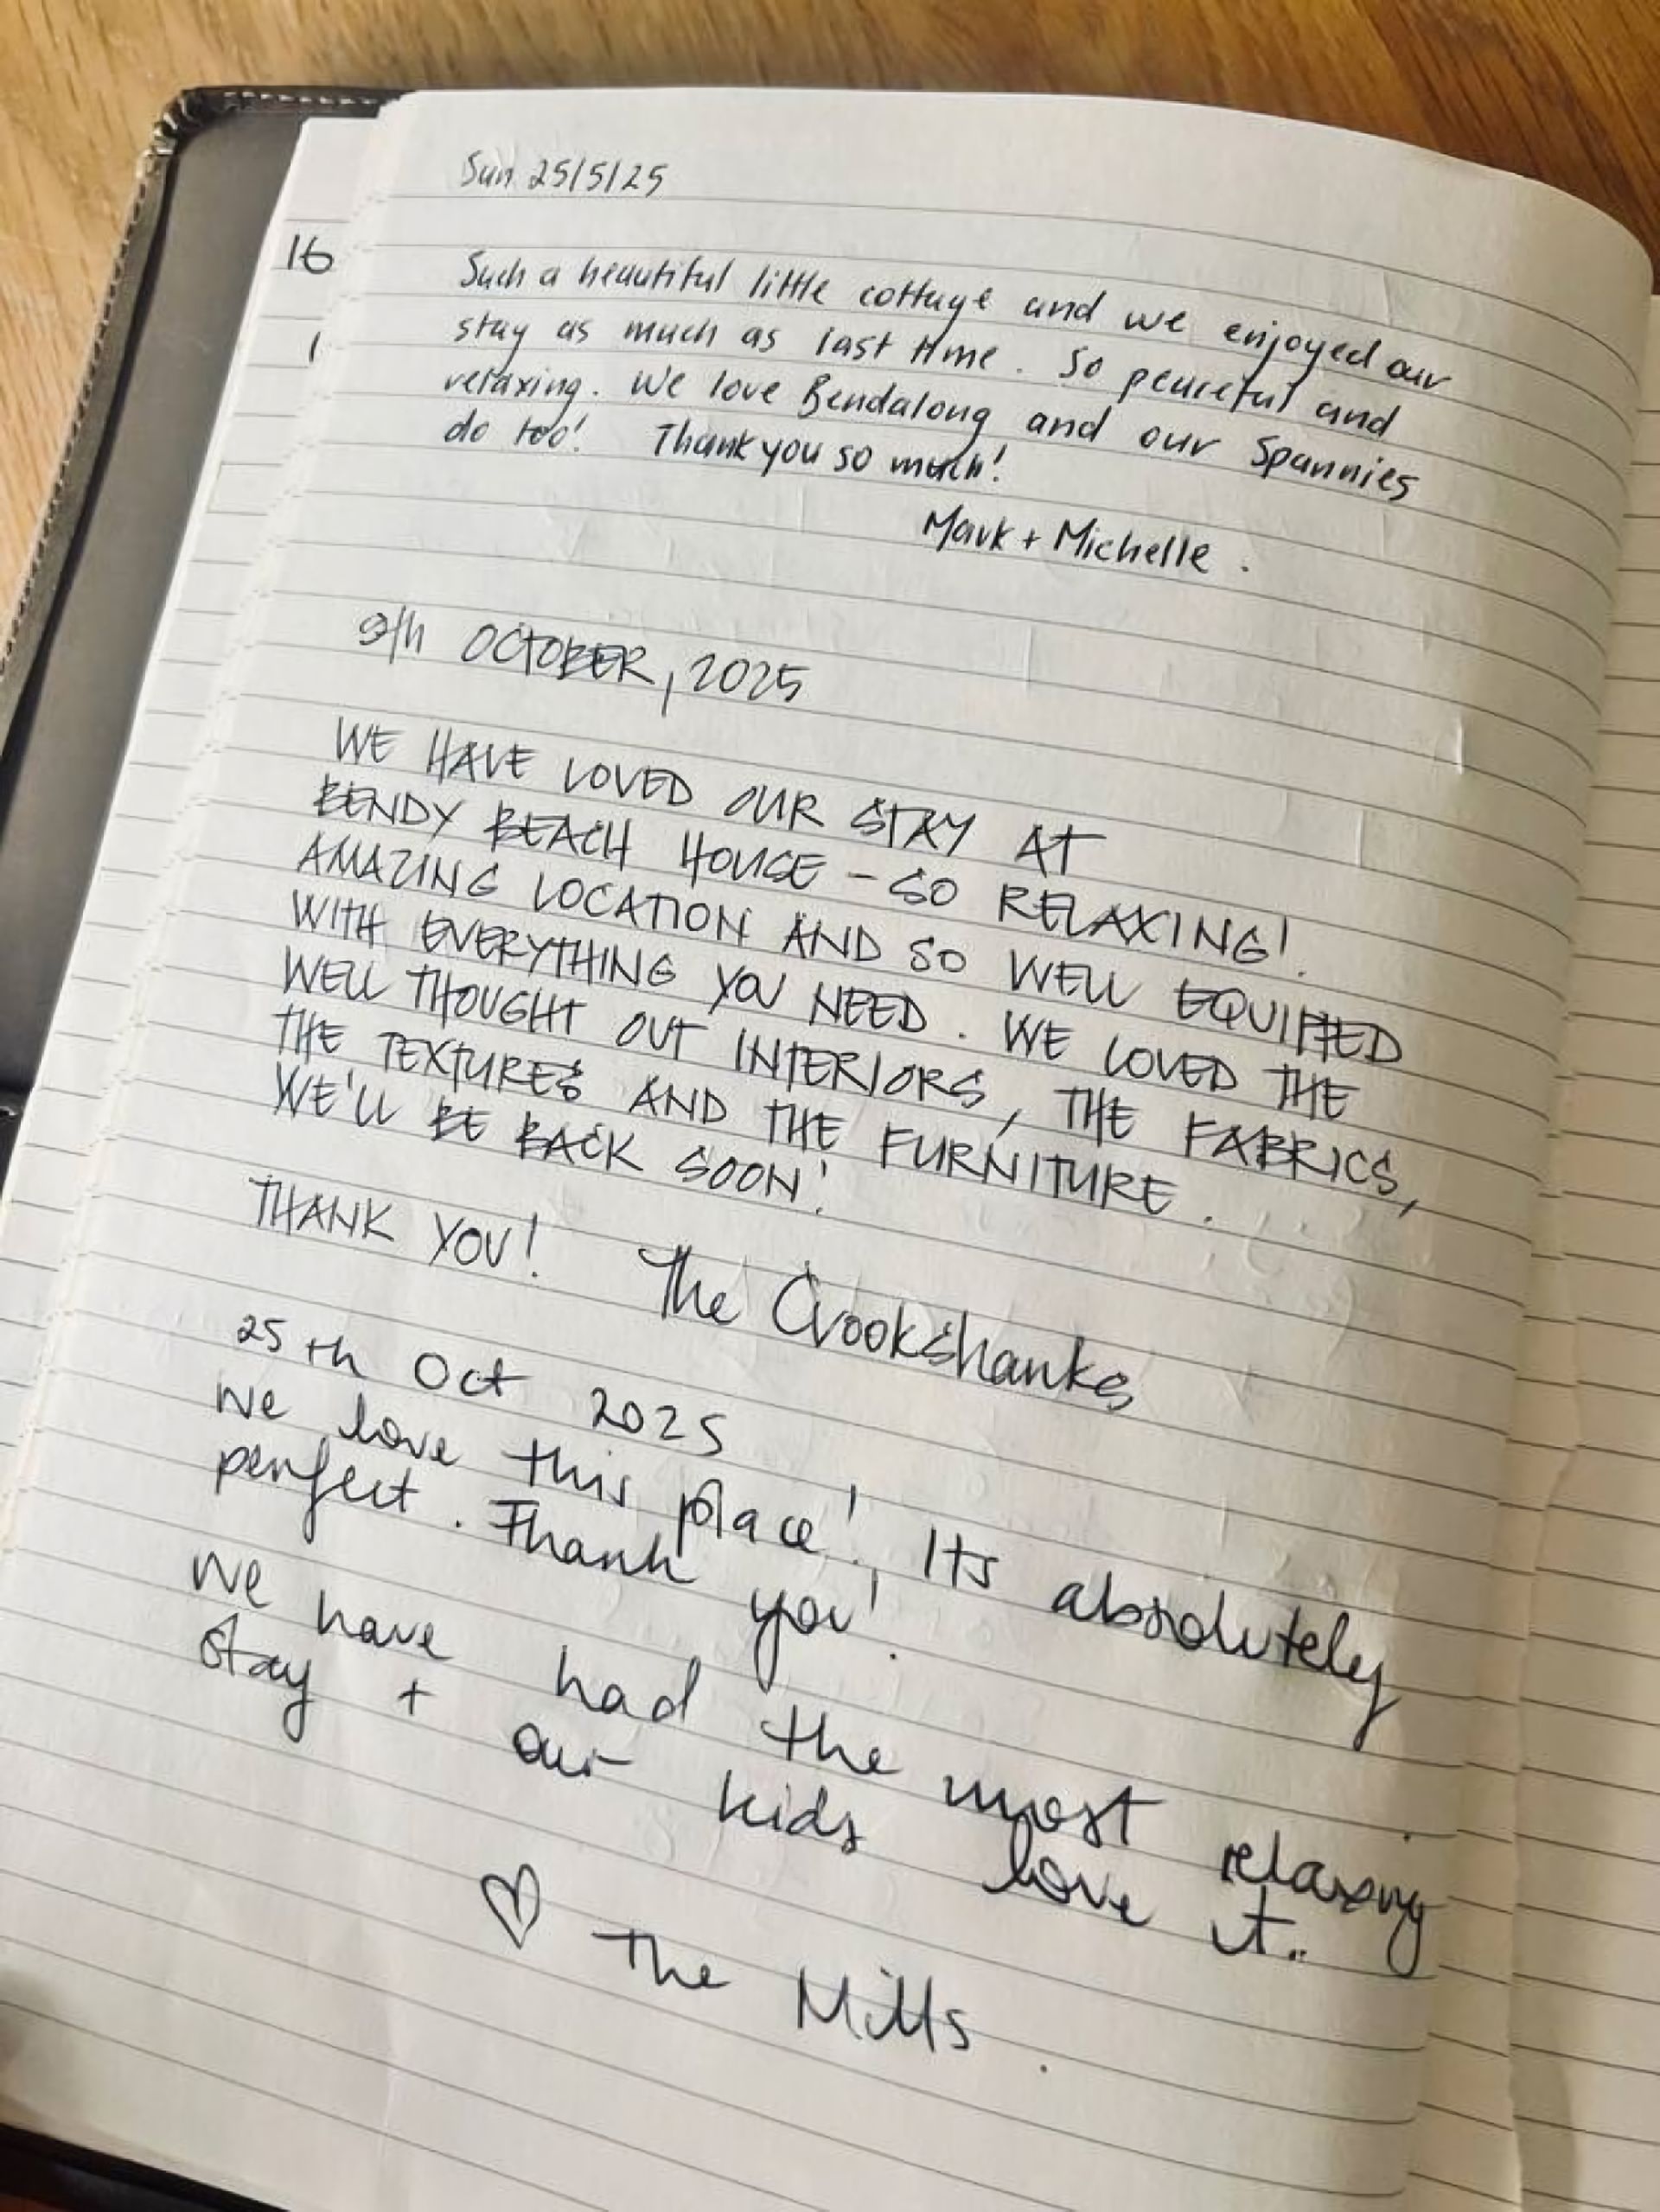 Sun 25/5/25
16
Such a beautiful little cottage and we enjoyed our
stay as much as last time. So peaceful and
relaxing. We love Bendalong and our Spannies
do too! Thank you so much!
Mark + Michelle.
9th OCTOBER, 2025
WE HAVE LOVED OUR STAY AT
BENDY BEACH HOUSE - SO RELAXING!
AMAZING LOCATION AND SO WELL EQUIPPED
WITH EVERYTHING YOU NEED. WE LOVED THE
WELL THOUGHT OUT INTERIORS, THE FABRICS,
THE TEXTURES AND THE FURNITURE.
WE'LL BE BACK SOON!
THANK YOU! The Crookshanks
25th Oct 2025
We love this place! Its absolutely
perfect. Thank you!
We have had the most relaxing
stay + our kids love it..
♡ The Mills.